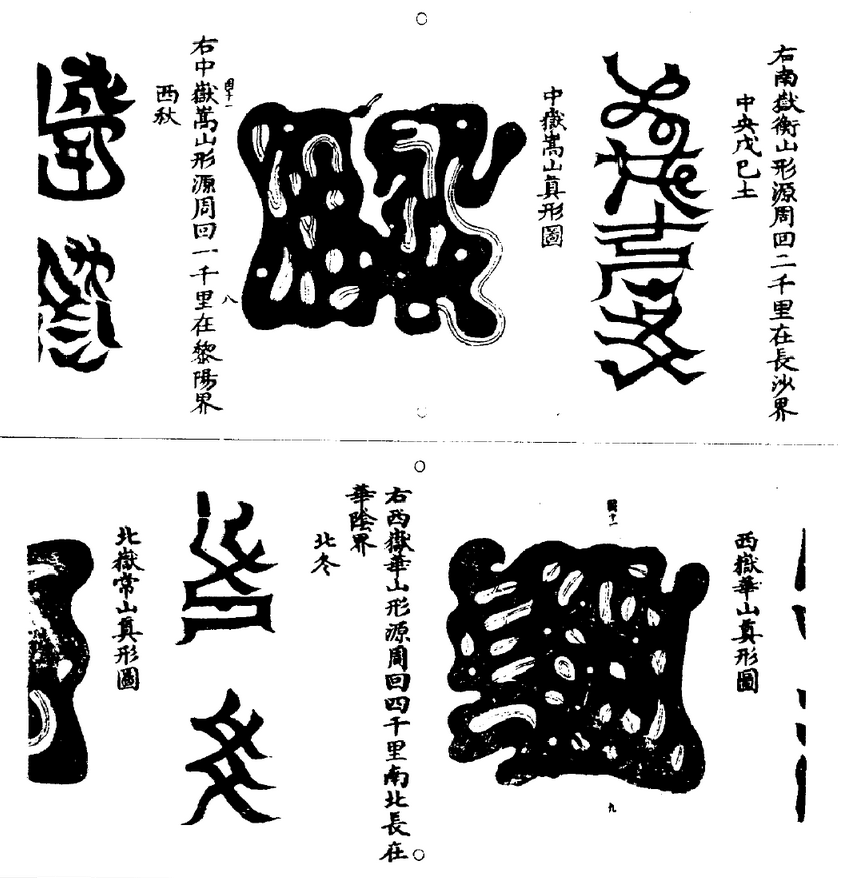 右南嶽衡山形源周回二千里在長沙界
中央戊巳土
中嶽嵩山真形圖
八
右中嶽嵩山形源周回一千里在黎陽界
西秋
西嶽華山真形圖
九
右西嶽華山形源周回四千里南北長在
華陰界
北冬
北嶽常山真形圖